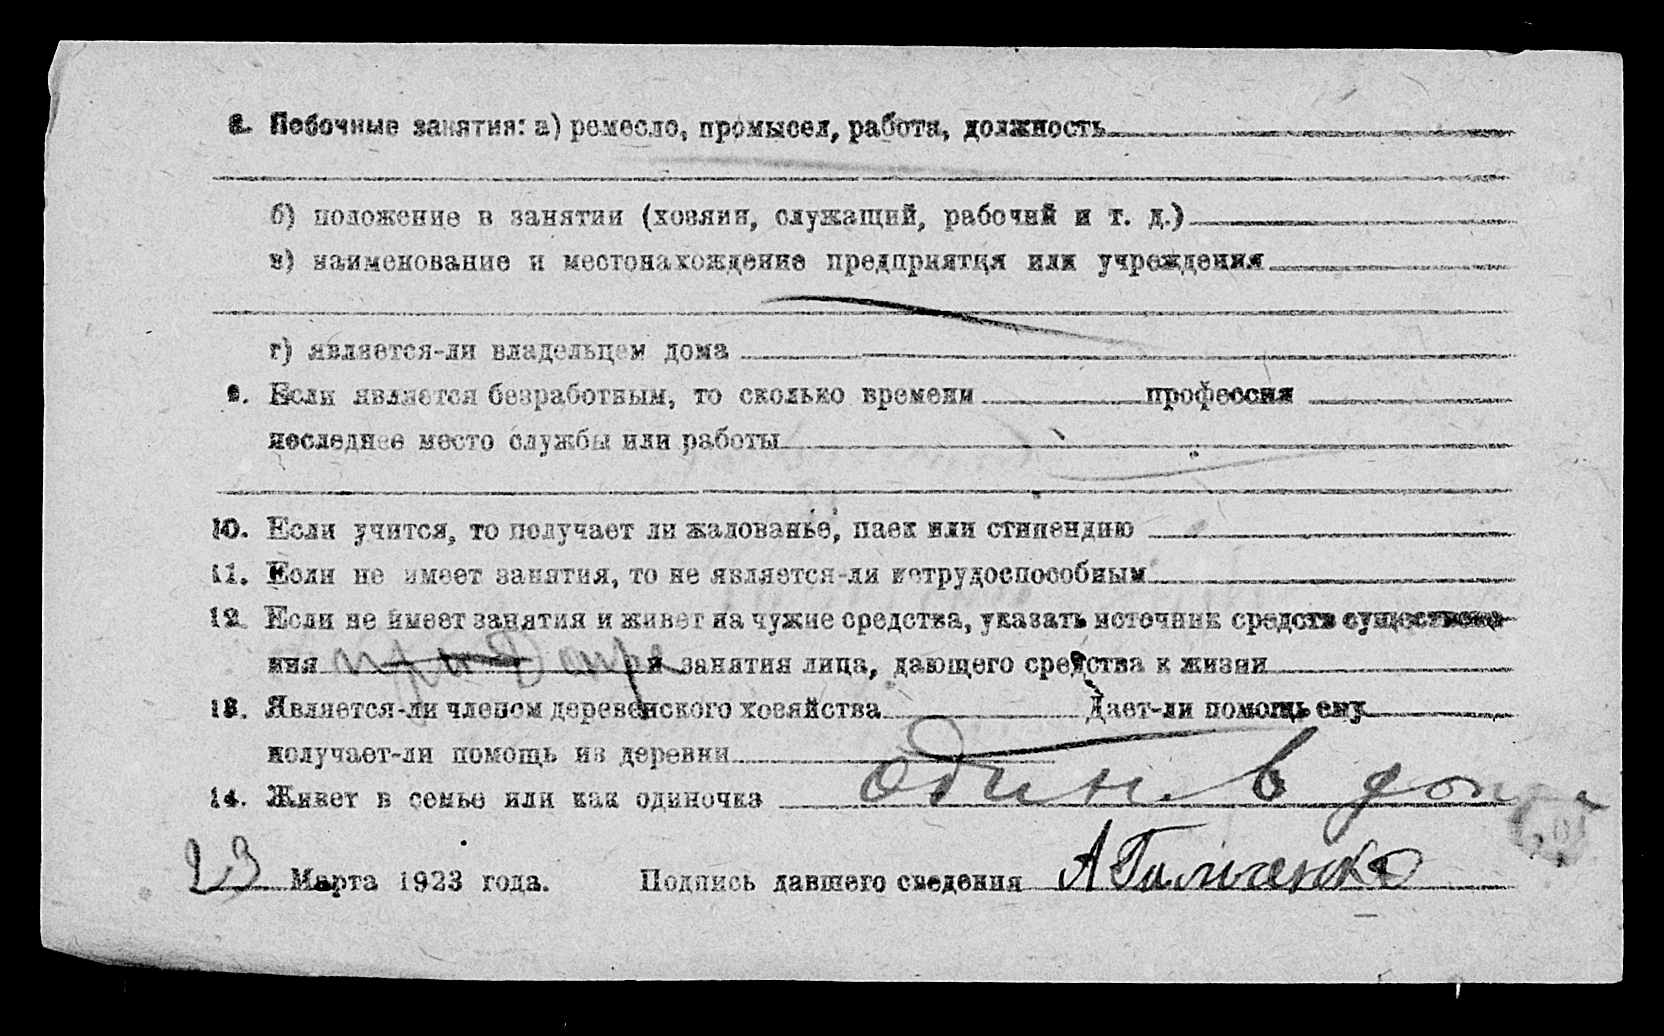 8. Побочные занятия: а) ремесло, промысел, работа, должность
б) положение в занятии (хозяин, служащий, рабочий и т. д.)
в) наименование и местонахождение предприятия или учреждения
г) является-ли владельцем дома
9. Если является безработным, то сколько времени профессия
последнее место службы или работы
10. Если учится, то получает ли жалованье, паек или стипендию
11. Если не имеет занятия, то не является-ли нетрудоспособным
12. Если не имеет занятия и живет на чужие средства, указать источник средств существова-
ния и занятия лица, дающего средства к жизни
13. Является-ли членом деревенского хозяйства Дает-ли помощь ему
получает-ли помощь из деревни
14. Живет в семье или как одиночка один в
23 Марта 1923 года. Подпись давшего сведения А